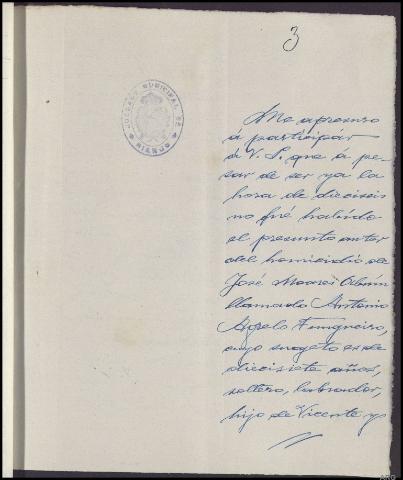 3
JUZGADO MUNICIPAL DE
RIANJO
Me apresuro
á participár
á V. S. que á pe-
sar de ser ya la
hora de dieciseis
no fué habido
el presunto autor
del homicidio de
José Moares
llamado Antonio
Angelo
cuyo sugeto es de
diecisiete años,
soltero, labrador,
hijo de Vicente y